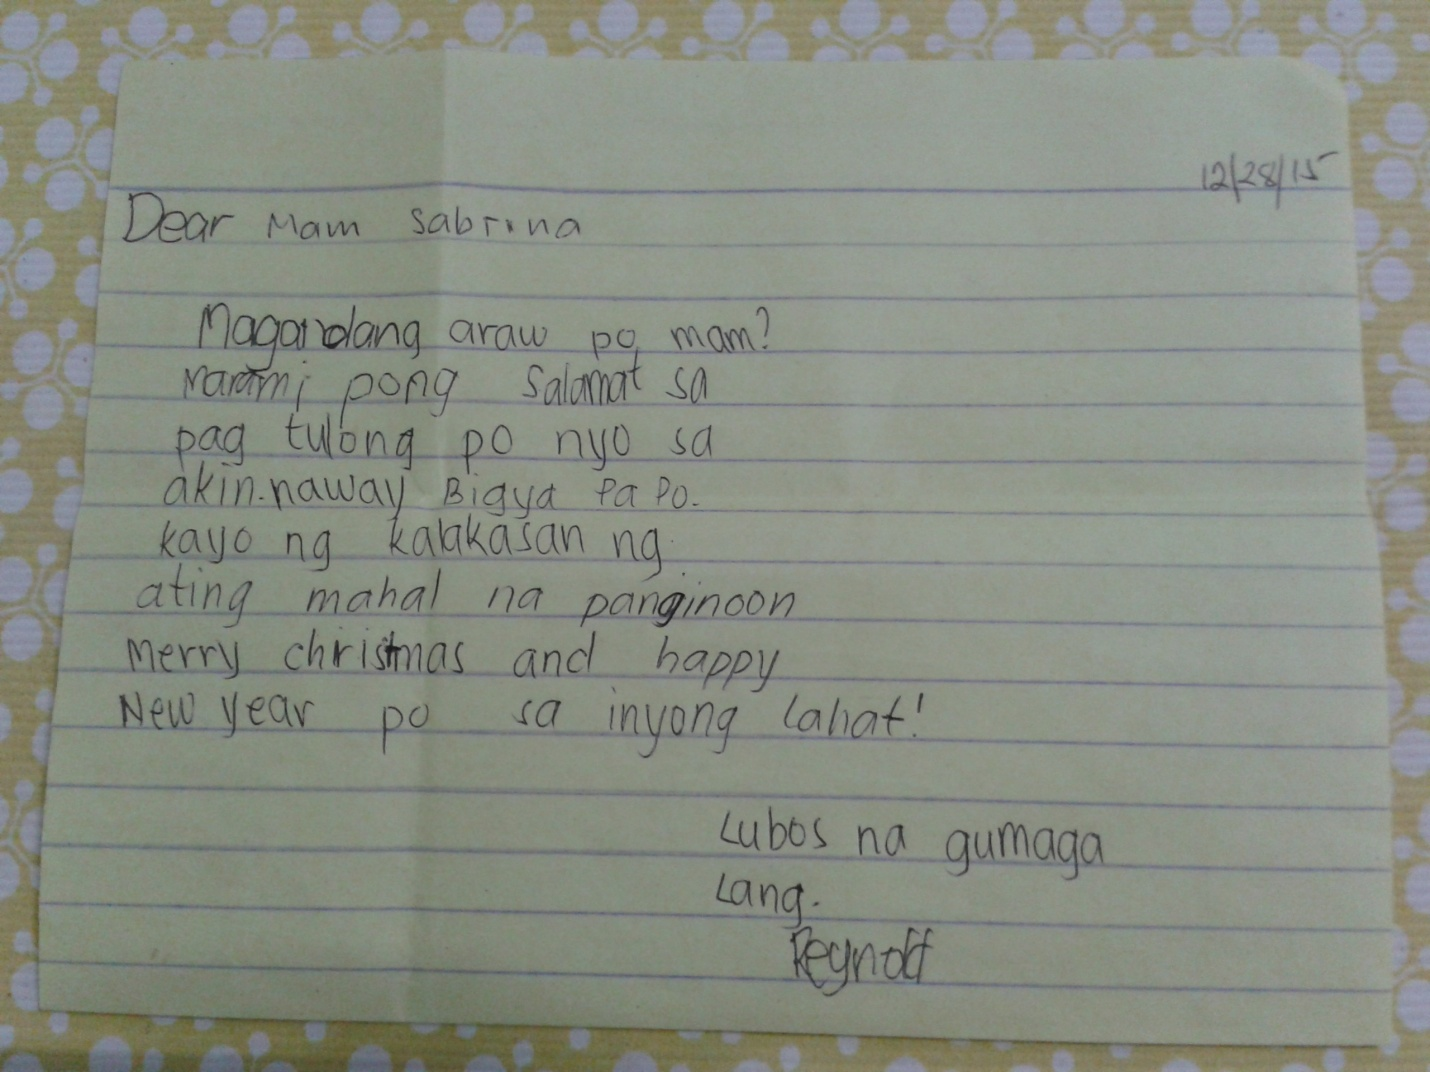 12/28/15
Dear Mam Sabrina
Magandang araw po mam?
Marami pong Salamat sa
pag tulong po nyo sa
akin. naway Bigya Pa Po.
kayo ng kalakasan ng
ating mahal na panginoon
Merry christmas and happy
New year po sa inyong Lahat!
Lubos na gumaga
Lang.